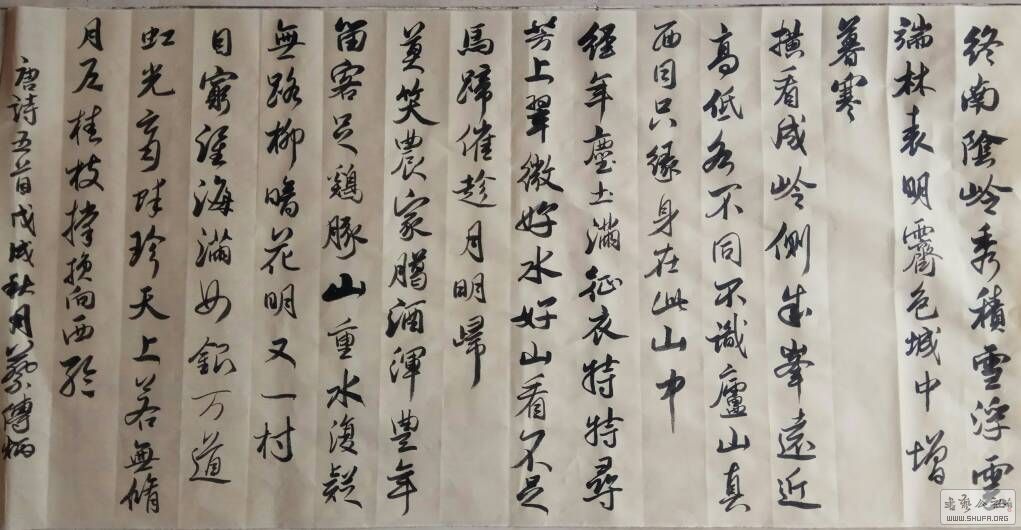 終南陰岭秀積雪浮雲
端林表明霽色城中增
暮寒
横看成岭側成峯遠近
高低各不同不識廬山真
面目只緣身在此山中
經年塵土滿征衣特特尋
芳上翠微好水好山看不足
馬蹄催趁月明歸
莫笑農家臘酒渾豐年
留客足鷄豚山重水復疑
無路柳暗花明又一村
目窮淮海滿如銀万道
虹光育蚌珍天上若無脩
月户桂枝撑損向西輪
唐詩五首戊戌秋月蔡炳
書藝公社
WWW.SHUFA.ORG